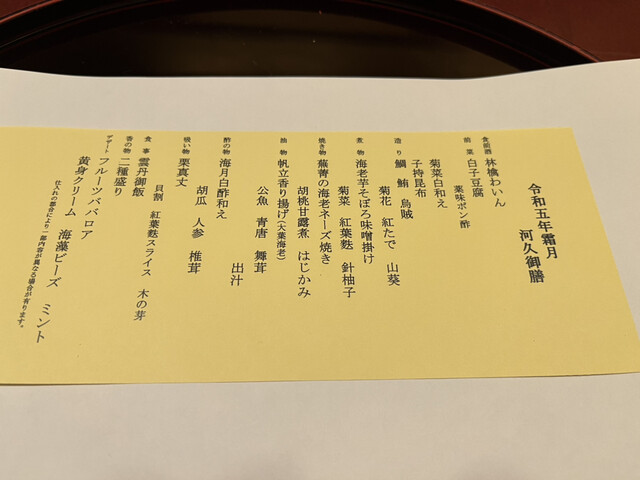 令和五年霜月
河久御膳
食前酒 林檎わいん
前菜 白子豆腐
薬味ポン酢
菊菜白和え
子持昆布
造り 鯛 鮪 烏賊
菊花 紅たで 山葵
煮物 海老芋そぼろ味噌掛け
菊菜 紅葉麩 針柚子
焼き物 蕪菁の海老ネーズ焼き
胡桃甘露煮 はじかみ
油物 帆立香り揚げ(大葉海老)
公魚 青唐 舞茸
酢の物 海月白酢和え
出汁
吸い物 栗真丈
胡瓜 人参 椎茸
食事 雲丹御飯
貝割 紅葉麩スライス 木の芽
香の物 二種盛り
デザート フルーツババロア
黄身クリーム 海藻ビーズ ミント
仕入れの都合により一部内容が異なる場合が有ります。